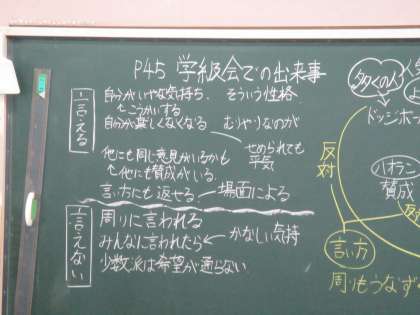 P45 学級会での出来事
言える
自分がいやな気持ち、そういう性格
↳こうかいする
自分が楽しくなくなる むりやりなのが
せめられても
平気
他にも同じ意見がいるかも
↳他にも賛成がいる
言い方にも返せる 場面による
言えない
周りに言われる
みんなに言われたら← かなしい気持
少数派は希望が通らない
多くの人
ドッジボー
反対
賛成
言い方
周りもうなず